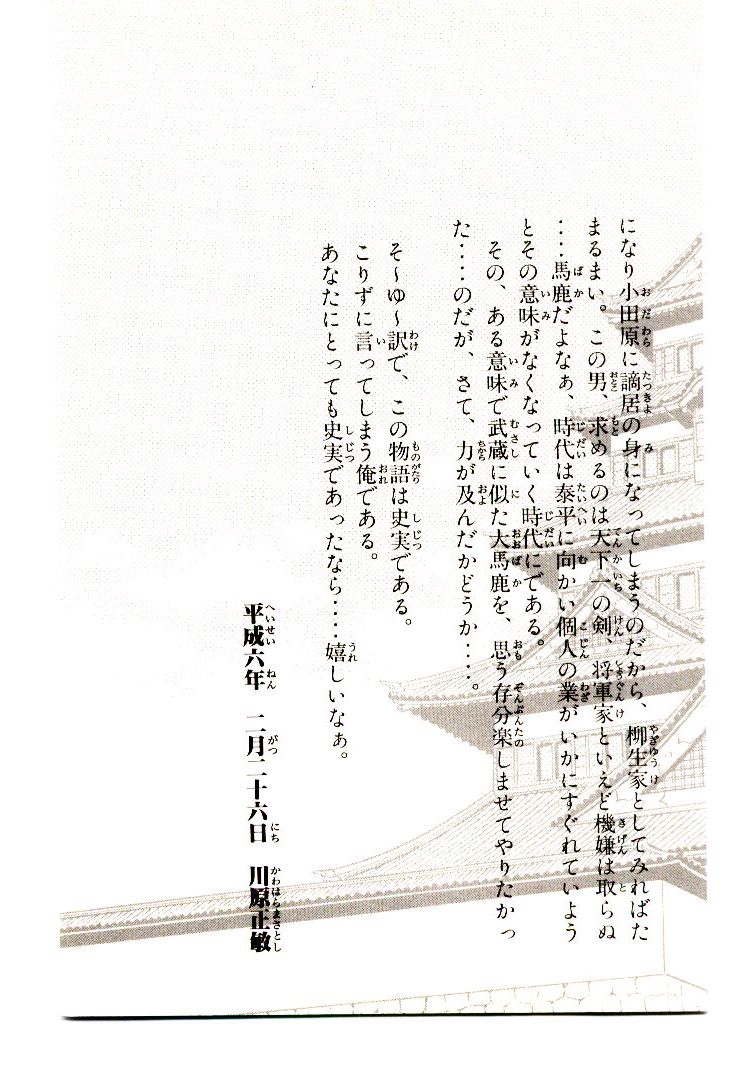 になり小田原に謫居の身になってしまうのだから、柳生家としてみればた
まるまい。この男、求めるのは天下一の剣、将軍家といえど機嫌は取らぬ
‥‥馬鹿だよなぁ、時代は泰平に向かい個人の業がいかにすぐれていよう
とその意味がなくなっていく時代にである。
その、ある意味で武蔵に似た大馬鹿を、思う存分楽しませてやりたかっ
た‥‥のだが、さて、力が及んだかどうか‥‥。
そ〜ゆ〜訳で、この物語は史実である。
こりずに言ってしまう俺である。
あなたにとっても史実であったなら‥‥嬉しいなぁ。
平成六年　二月二十六日　川原正敏